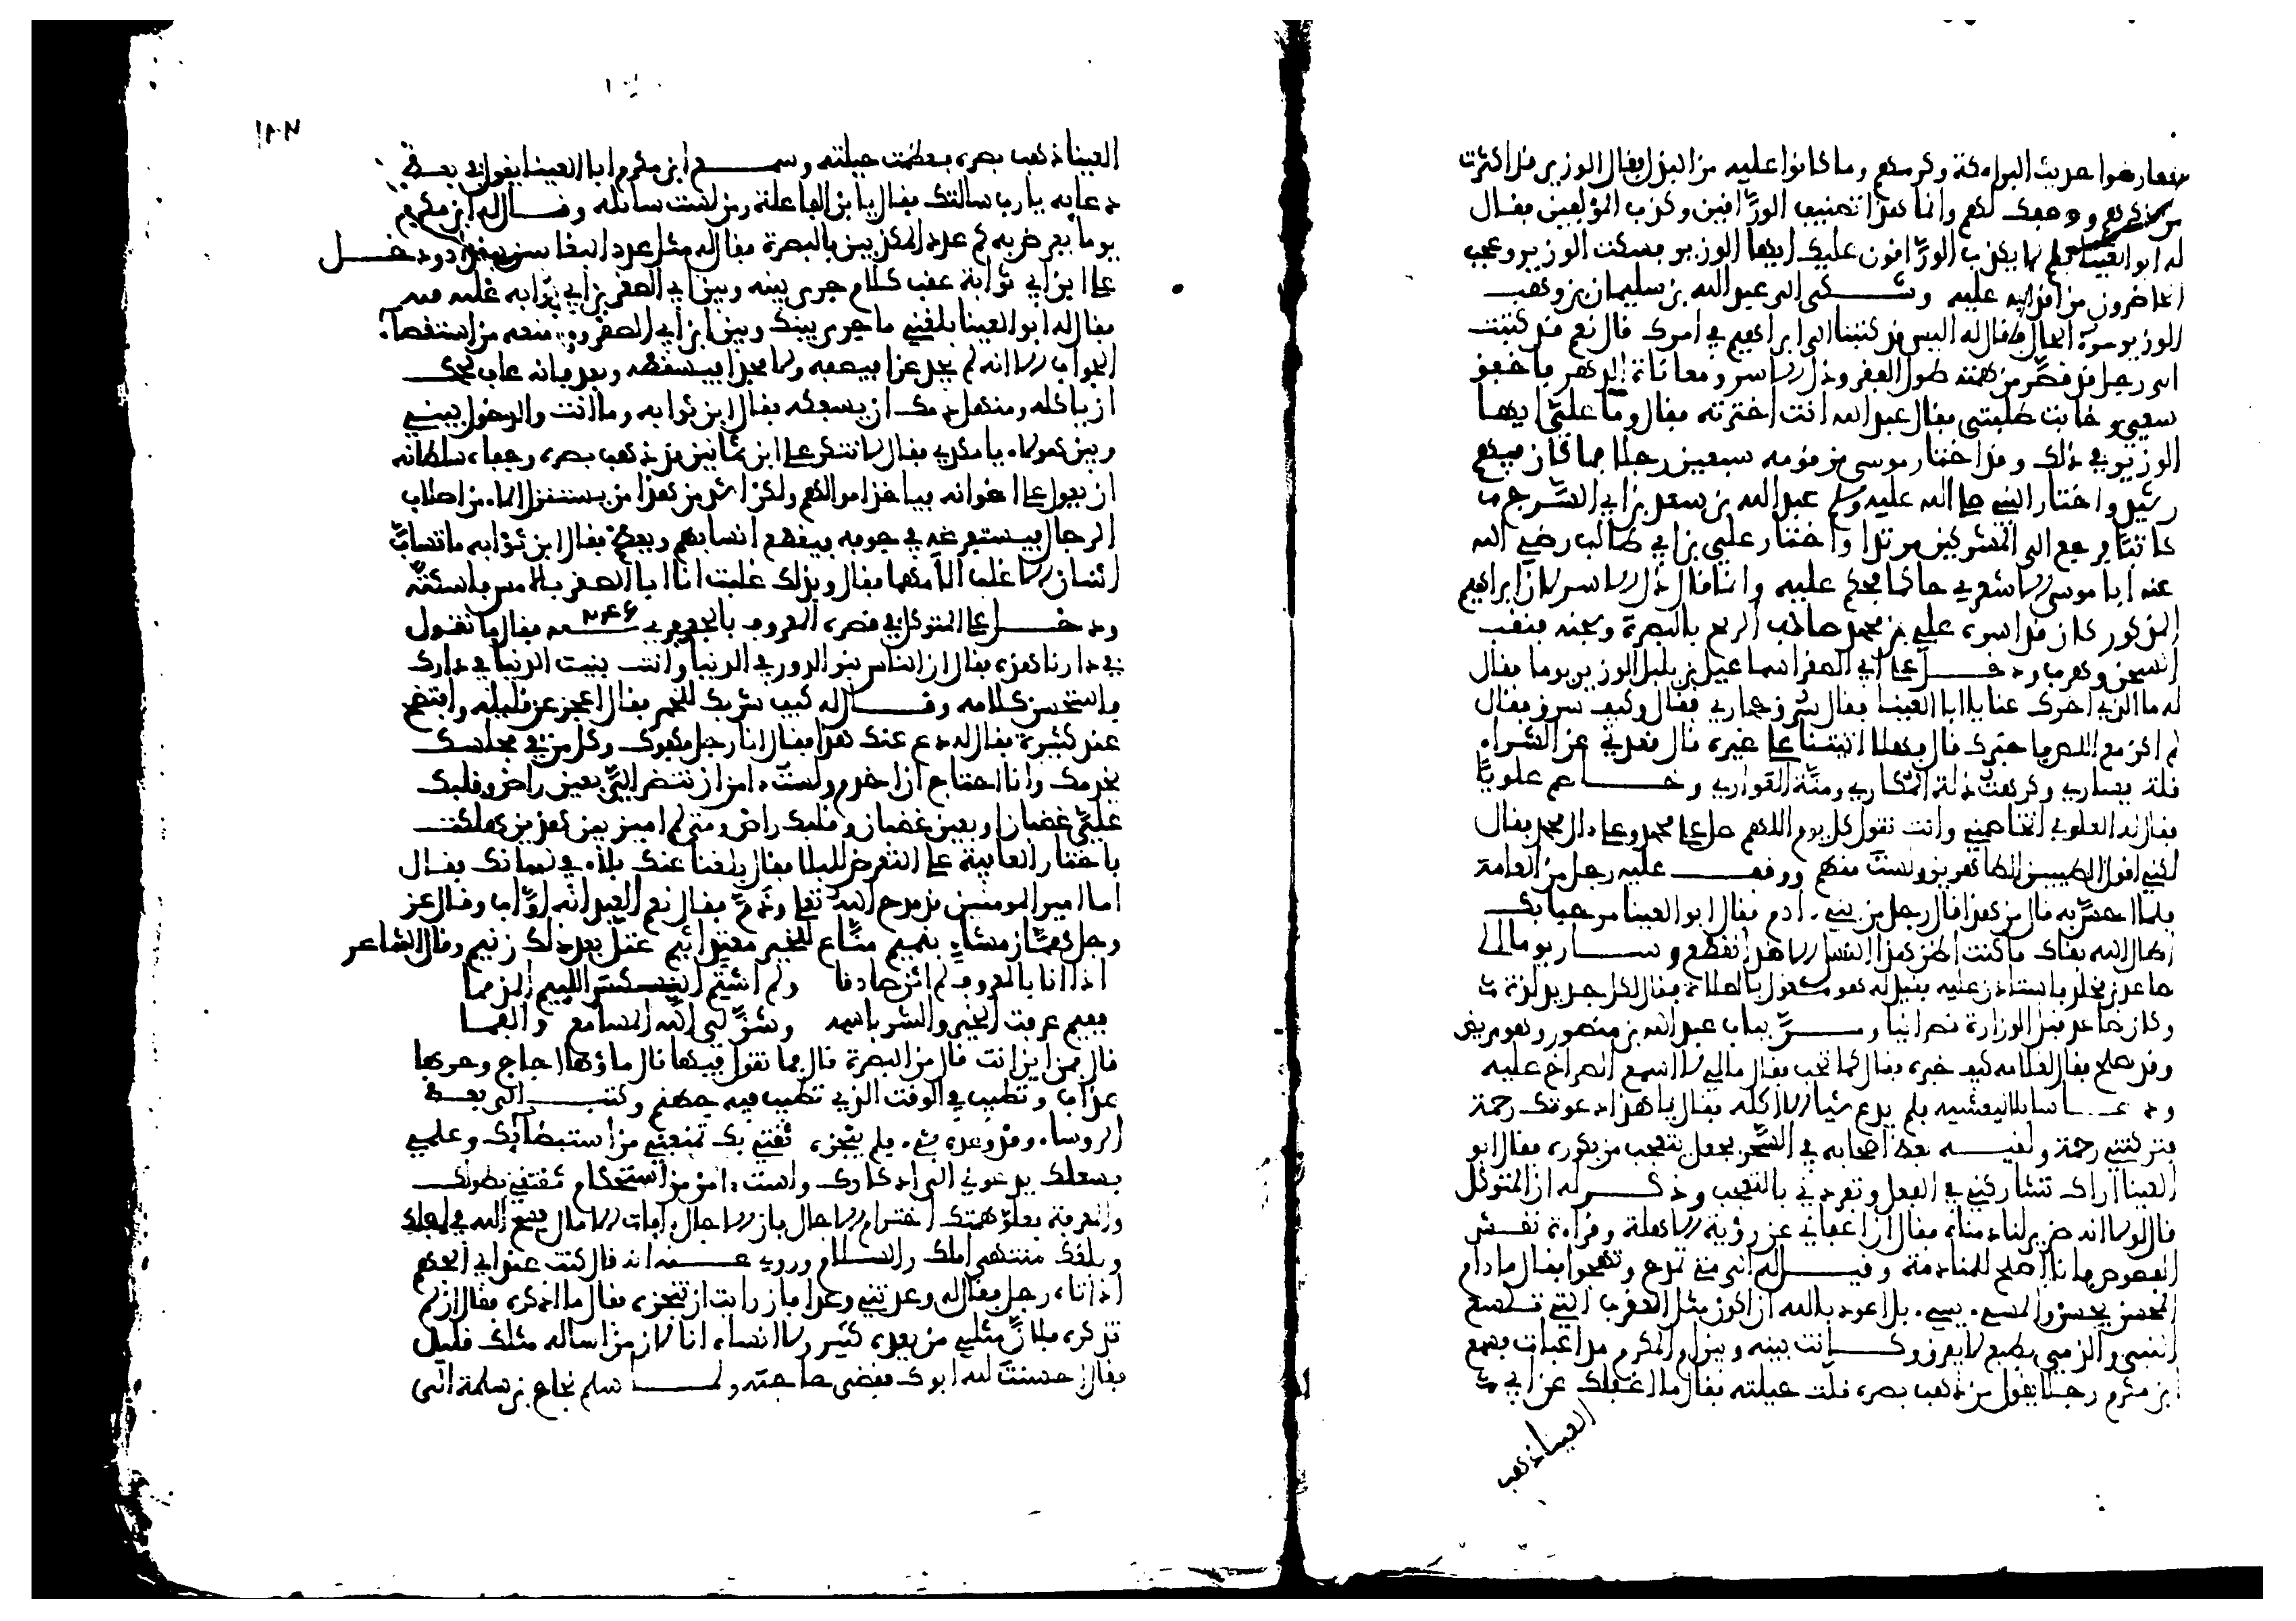 فتفاوضوا حديث البرامكة وكرمهم وما كانوا عليه من البذل فقال الوزير قد اكثرت
من ذكرهم ووصفك لهم وانما هذا تصنيف الورّاقين وكذب المؤلفين فقال
له ابو العينا فلم لا يكذب الورّاقون عليك ايها الوزير فسكت الوزير وعجب
الحاضرون من اقدامه عليه وشكى الى عبد الله بن سليمان بن وهب
الوزير سوء الحال فقال له اليس قد كتبنا الى ابراهيم في امرك قال نعم قد كتبت
الى رجل قد قصّر من همته طول الفقر وذل الاسر ومعاناة الدهر فاخفق
سعيي وخابت طلبتي فقال عبد الله انت اخترته فقال وما عليّ ايها
الوزير في ذلك وقد اختار موسى من قومه سبعين رجلا فما كان فيهم
رشيد واختار النبي صلى الله عليه وسلم عبد الله بن سعد بن ابي السّرح
كاتبًا فرجع الى المشركين مرتدا واختار علي بن ابي طالب رضي الله
عنه ابا موسى الاشعري حاكما فحكم عليه وانما قال ذل الاسر لان ابراهيم
المذكور كان قد اسره علي بن محمد صاحب الزنج بالبصرة وسجنه فنقب
السجن وهرب ودخل على ابي الصقر اسماعيل بن بلبل الوزير يوما فقال
له ما الذي اخرك عنا يا ابا العينا فقال سُرق حماري فقال وكيف سرق فقال
لم اكن مع اللص فاخبرك قال فهلا اتيتنا على غيره قال قعد بي عن الشراء
قلة يساري وكرهت ذلة المكاري ومنّة العواري وخاصم علويّا
فقال له العلوي اتخاصمني وانت تقول كل يوم اللهم صل على محمد وعلى ال محمد فقال
لكني اقول الطيبين الطاهرين ولست منهم ووقف عليه رجل من العامة
فلما احسّ به قال من هذا قال رجل من بني ادم فقال ابو العينا مرحبا بك
اطال الله بقاك ما كنت اظن هذا النسل الا قد انقطع وسار يوما الى
صاعد بن مخلد فاستاذن عليه فقيل له هو مشغول بالصلاة فقال لكل جديد لذة
وكان صاعد قبل الوزارة نصرانيا ومرّ بباب عبد الله بن منصور وهو مريض
وقد صلح فقال لغلامه كيف خبره فقال كما تحب فقال ما لي لا اسمع الصراخ عليه
ودعا سايلا ليعشيه فلم يدع شيا الا اكله فقال يا هذا دعوتك رحمة
فتركتني رحمة ولقيه بعض اصحابه في السّحر فجعل يتعجب من بكوره فقال ابو
العينا اراك تشاركني في الفعل وتفردني بالتعجب وذكر له ان المتوكل
قال لولا انه ضرير لنادمناه فقال ان اعفاني عن رؤية الاهلة وقراءة نقش
الفصوص فانا اصلح للمنادمة وقيل له الى متى تمدح وتهجوا فقال ما دام
المحسن يحسن والمسيء يسيء بل اعوذ بالله ان اكون مثل العقرب التي تلسع
النبي والذمي بطبع لا يفرق وكانت بينه وبين ابن المكرم مداعبات فسمع
ابن مكرم رجلا يقول من ذهب بصره قلت حيلته فقال ما اغفلك عن ابي
العينا ذهب
العينا ذهب بصره فعظمت حيلته وسمع ابن مكرم ابا العينا يقول في بعض
دعايه يا رب سالتك فقال يا ابن الفاعلة ومن لست سائله وقال له ابن مكرم
يوما يعرض به كم عدد المكذبين بالبصرة فقال له مثل عدد البغايين ببغداد ودخل
على ابن ابي ثوابة عقب كلام جرى بينه وبين ابي الصقر بن ابي ثوابه غلبه فيه
فقال له ابو العينا بلغني ما جرى بينك وبين ابي الصقر وما منعه من استقصاء
الجواب الا انه لم يجد عزا فيضعه ولا مجدا فينقصه وبعد فانه عاف لحمك
ان ياكله ومنهل دمك ان يسفكه فقال ابن ثوابه وما انت والدخول بيني
وبين هولاء يا مكدي فقال لا تنكر على ابن ثمانين قد ذهب بصره وجفاه سلطانه
ان يعول على اخوانه فياخذ اموالهم ولكن اشد من هذا من يستنزل الماء من اصلاب
الرجال فيستفرغه في جوفه فيقطع انسابهم فقال ابن ثوابه ما تسابّ
اثنان الا غلب الأمهما فقال وبذلك غلبت انا ابا الصقر بالامس فاسكته
ودخل على المتوكل في قصره المعروف بالجعفري ٢٤٦ سنة فقال ما تقول
في دارنا هذه فقال ان الناس بنو الدور في الدنيا وانت بنيت الدنيا في دارك
فاستحسن كلامه وقال له كيف شربك للخمر فقال اعجز عن قليله وافتضح
عند كثيره فقال له دع عنك هذا فقال انا رجل مكفوف وكل من في مجلسك
يخدمك وانا احتاج ان اخدم ولست امن ان تنضر اليّ بعين راض وقلبك
عليّ غضبان او بعين غضبان وقلبك راض ومتى لم اميز بين هذين هلكت
فاختار العافية على التعرض للبلا فقال بلغنا عنك بذاء في لسانك فقال
اما امير المومنين قد مدح الله تعلى وذمّ فقال نعم العبد انه اوّاب وقال عز
وجل همّاز مشاء بنميم منّاع للخير معتد اثيم عتل بعد ذلك زنيم وقال الشاعر
اذا انا بالمعروف لم اثن صادقا ولم اشتم النكس اللئيم المذمما
ففيم عرفت الخير والشر باسمه وشقّ لي الله المسامع والفما
قال فمن اين انت قال من البصرة قال فما تقول فيها قال ماؤها اجاج وحرها
عذاب وتطيب في الوقت الذي تطيب فيه جهنم وكتب الى بعض
الروساء وقد وعده بشيء فلم ينجزه ثقتي بك تمنعني من استبطائك وعلمي
بشغلك يدعوني الى اذكارك ولست امن من استحكام ثقتي بطولك
والمعرفة بعلوّ همتك اخترام الاجال فان الاجال افات الامال فسح الله في اجلك
وبلغك منتهى املك والسلام وروي عنه انه قال كنت عند ابي الحكم
اذ اتاه رجل فقال له وعدتني وعدا فان رايت ان تنجزه فقال ما اذكره فقال ان لم
تذكره فلانّ مثلي من بعده كثير ولا انساه انا لان من اساله مثلك قليل
فقال احسنت لله ابوك فقضى حاجته ولما سلم نجاح بن سلمة الى